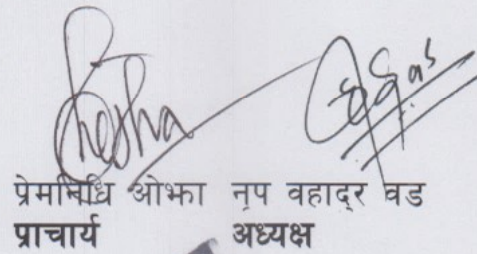 प्रेमनिधि ओझा नृप वहादुर वड
प्राचार्य अध्यक्ष